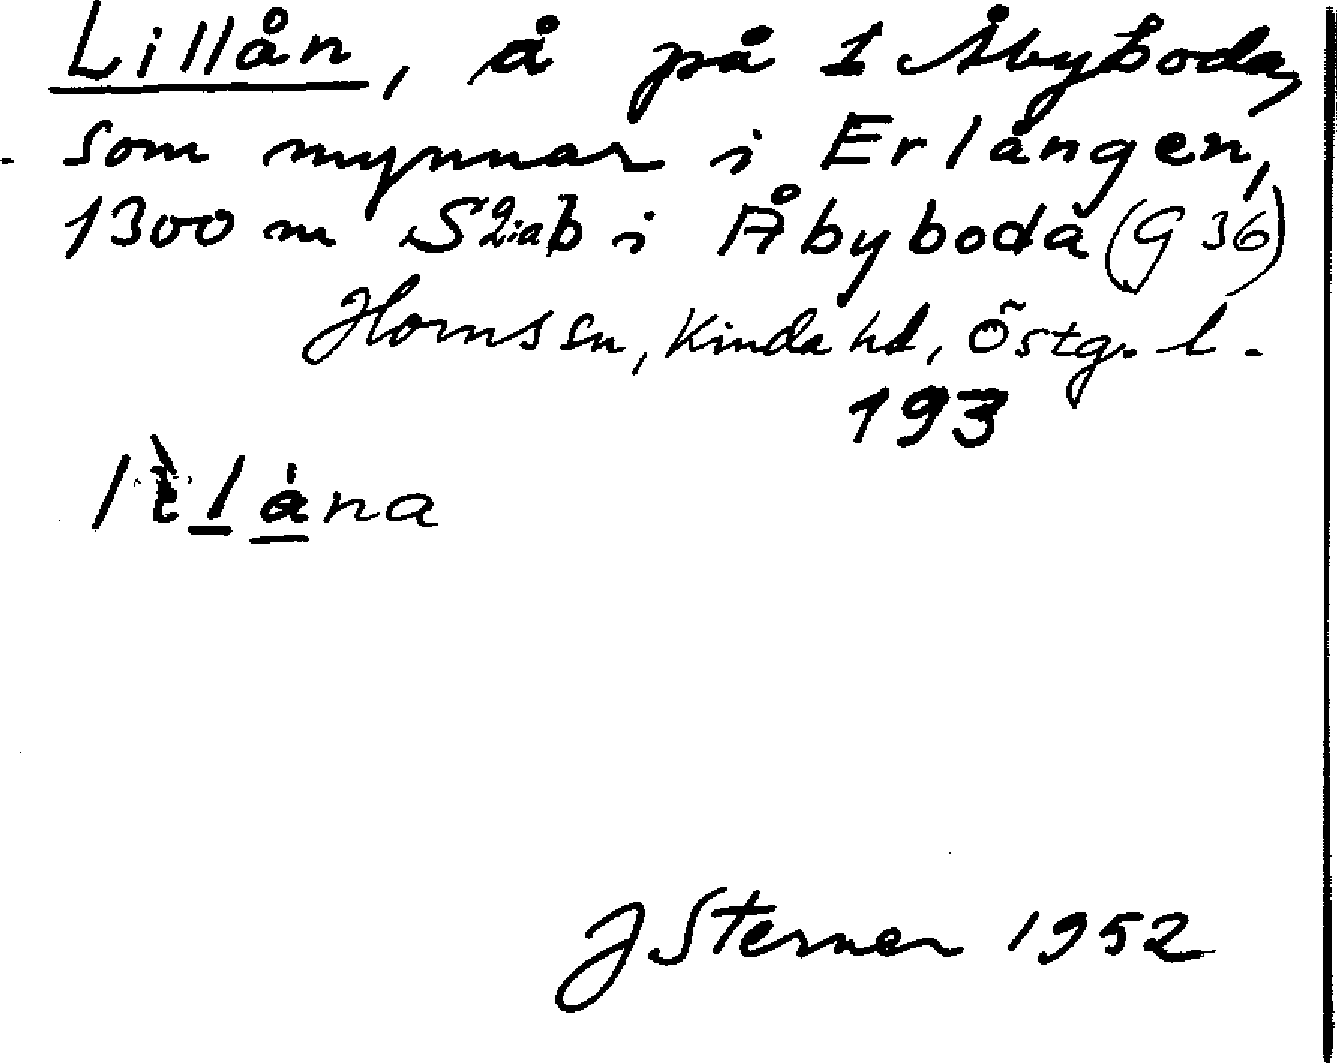 Lillån, å på 1 Åbyboda,
som mynnar i Erlången,
1300 m S 2:ab i Åbyboda (9 36)
Horns sn, Kinda hd, Östg. l.
193
lána
J Sterner 1952